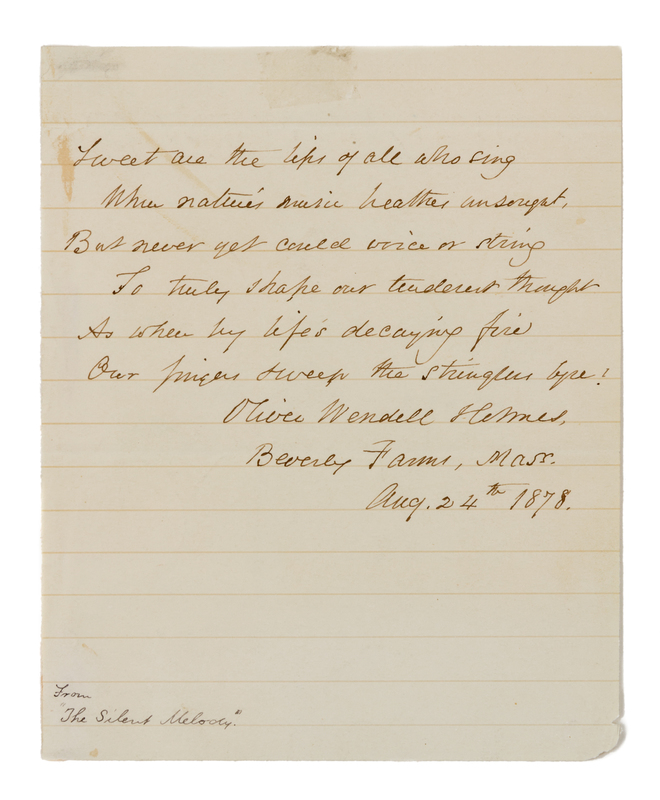 Sweet are the lips of all who sing
When nature's music breathes unsought,
But never yet could voice or string
So truly shape our tenderest thought
As when by life's decaying fire
Our fingers sweep the stringless lyre!
Oliver Wendell Holmes,
Beverly Farms, Mass.
Aug. 24th 1878.
From
"The Silent Melody."